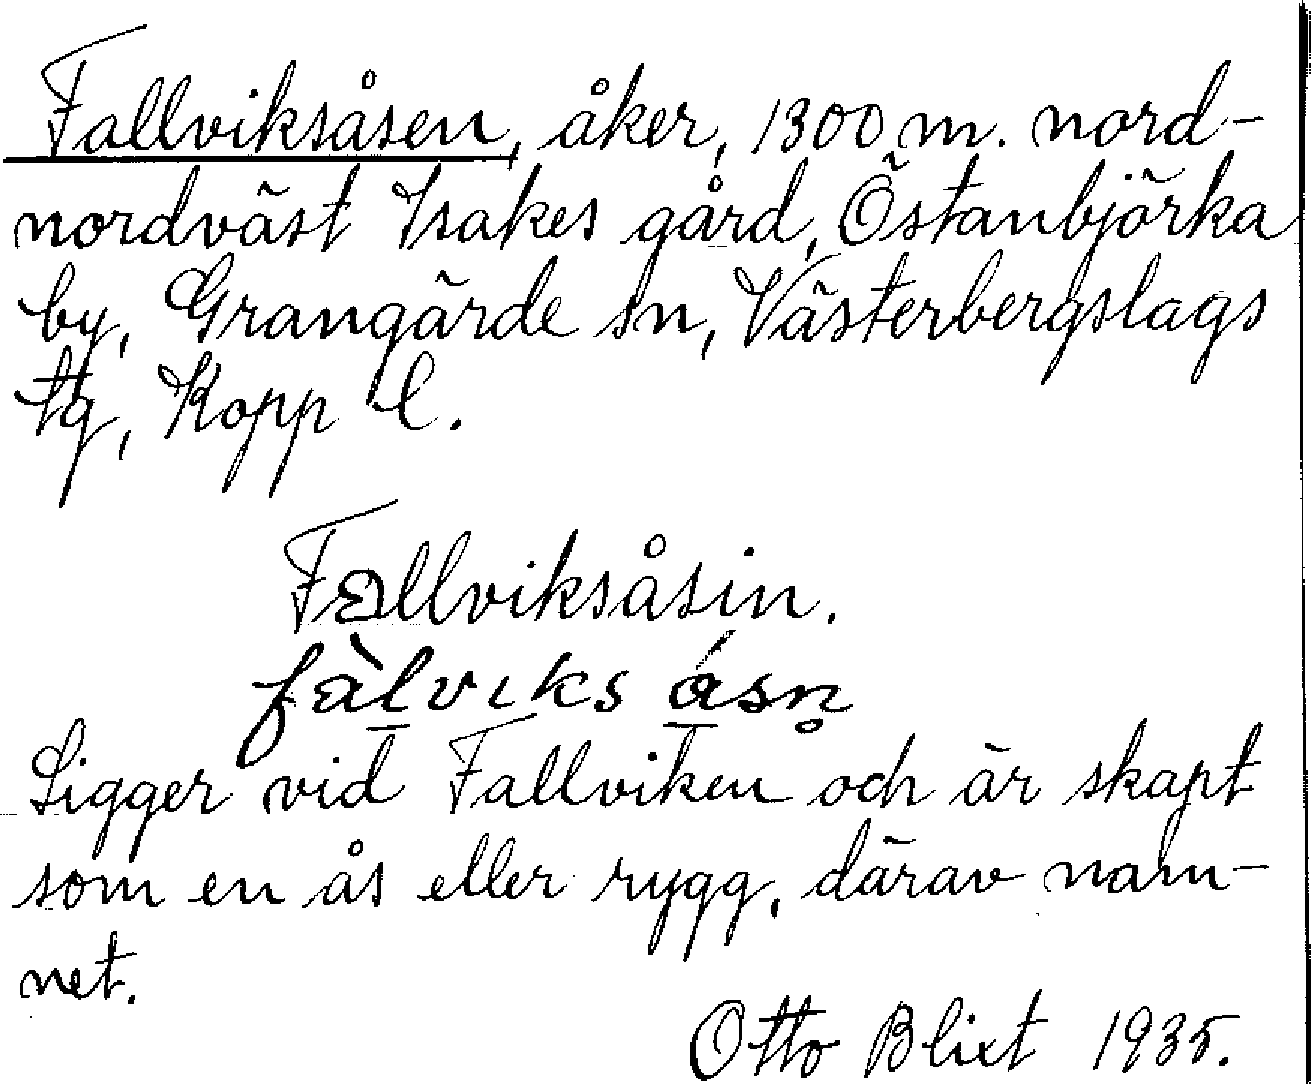 Fallviksåsen, åker, 1300 m. nord-
nordväst Isakes gård, Östanbjörka
by, Grangärde sn, Västerbergslags
tg, Kopp l.
Fallviksåsin.
fàlvıks ásn̥
Ligger vid Fallviken och är skapt
som en ås eller rygg, därav nam-
net.
Otto Blixt 1935.